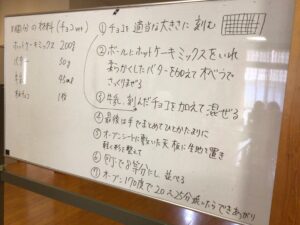 8個分の材料(チョコver)
ホットケーキミックス 200g
バター 50g
牛乳 45ml
板チョコ 1枚
①チョコを適当な大きさに刻む
②ボールにホットケーキミックスをいれ
柔らかくしたバターを加えて木べらで
さっくりまぜる
③牛乳、刻んだチョコを加えて混ぜる
④最後は手でまとめてひとかたまりに
⑤オーブンシートに敷いた天板に生地を置き
軽く形を整えて
⑥包丁で8等分にし 並べる
⑦オーブン170度で20~25分焼いたらできあがり